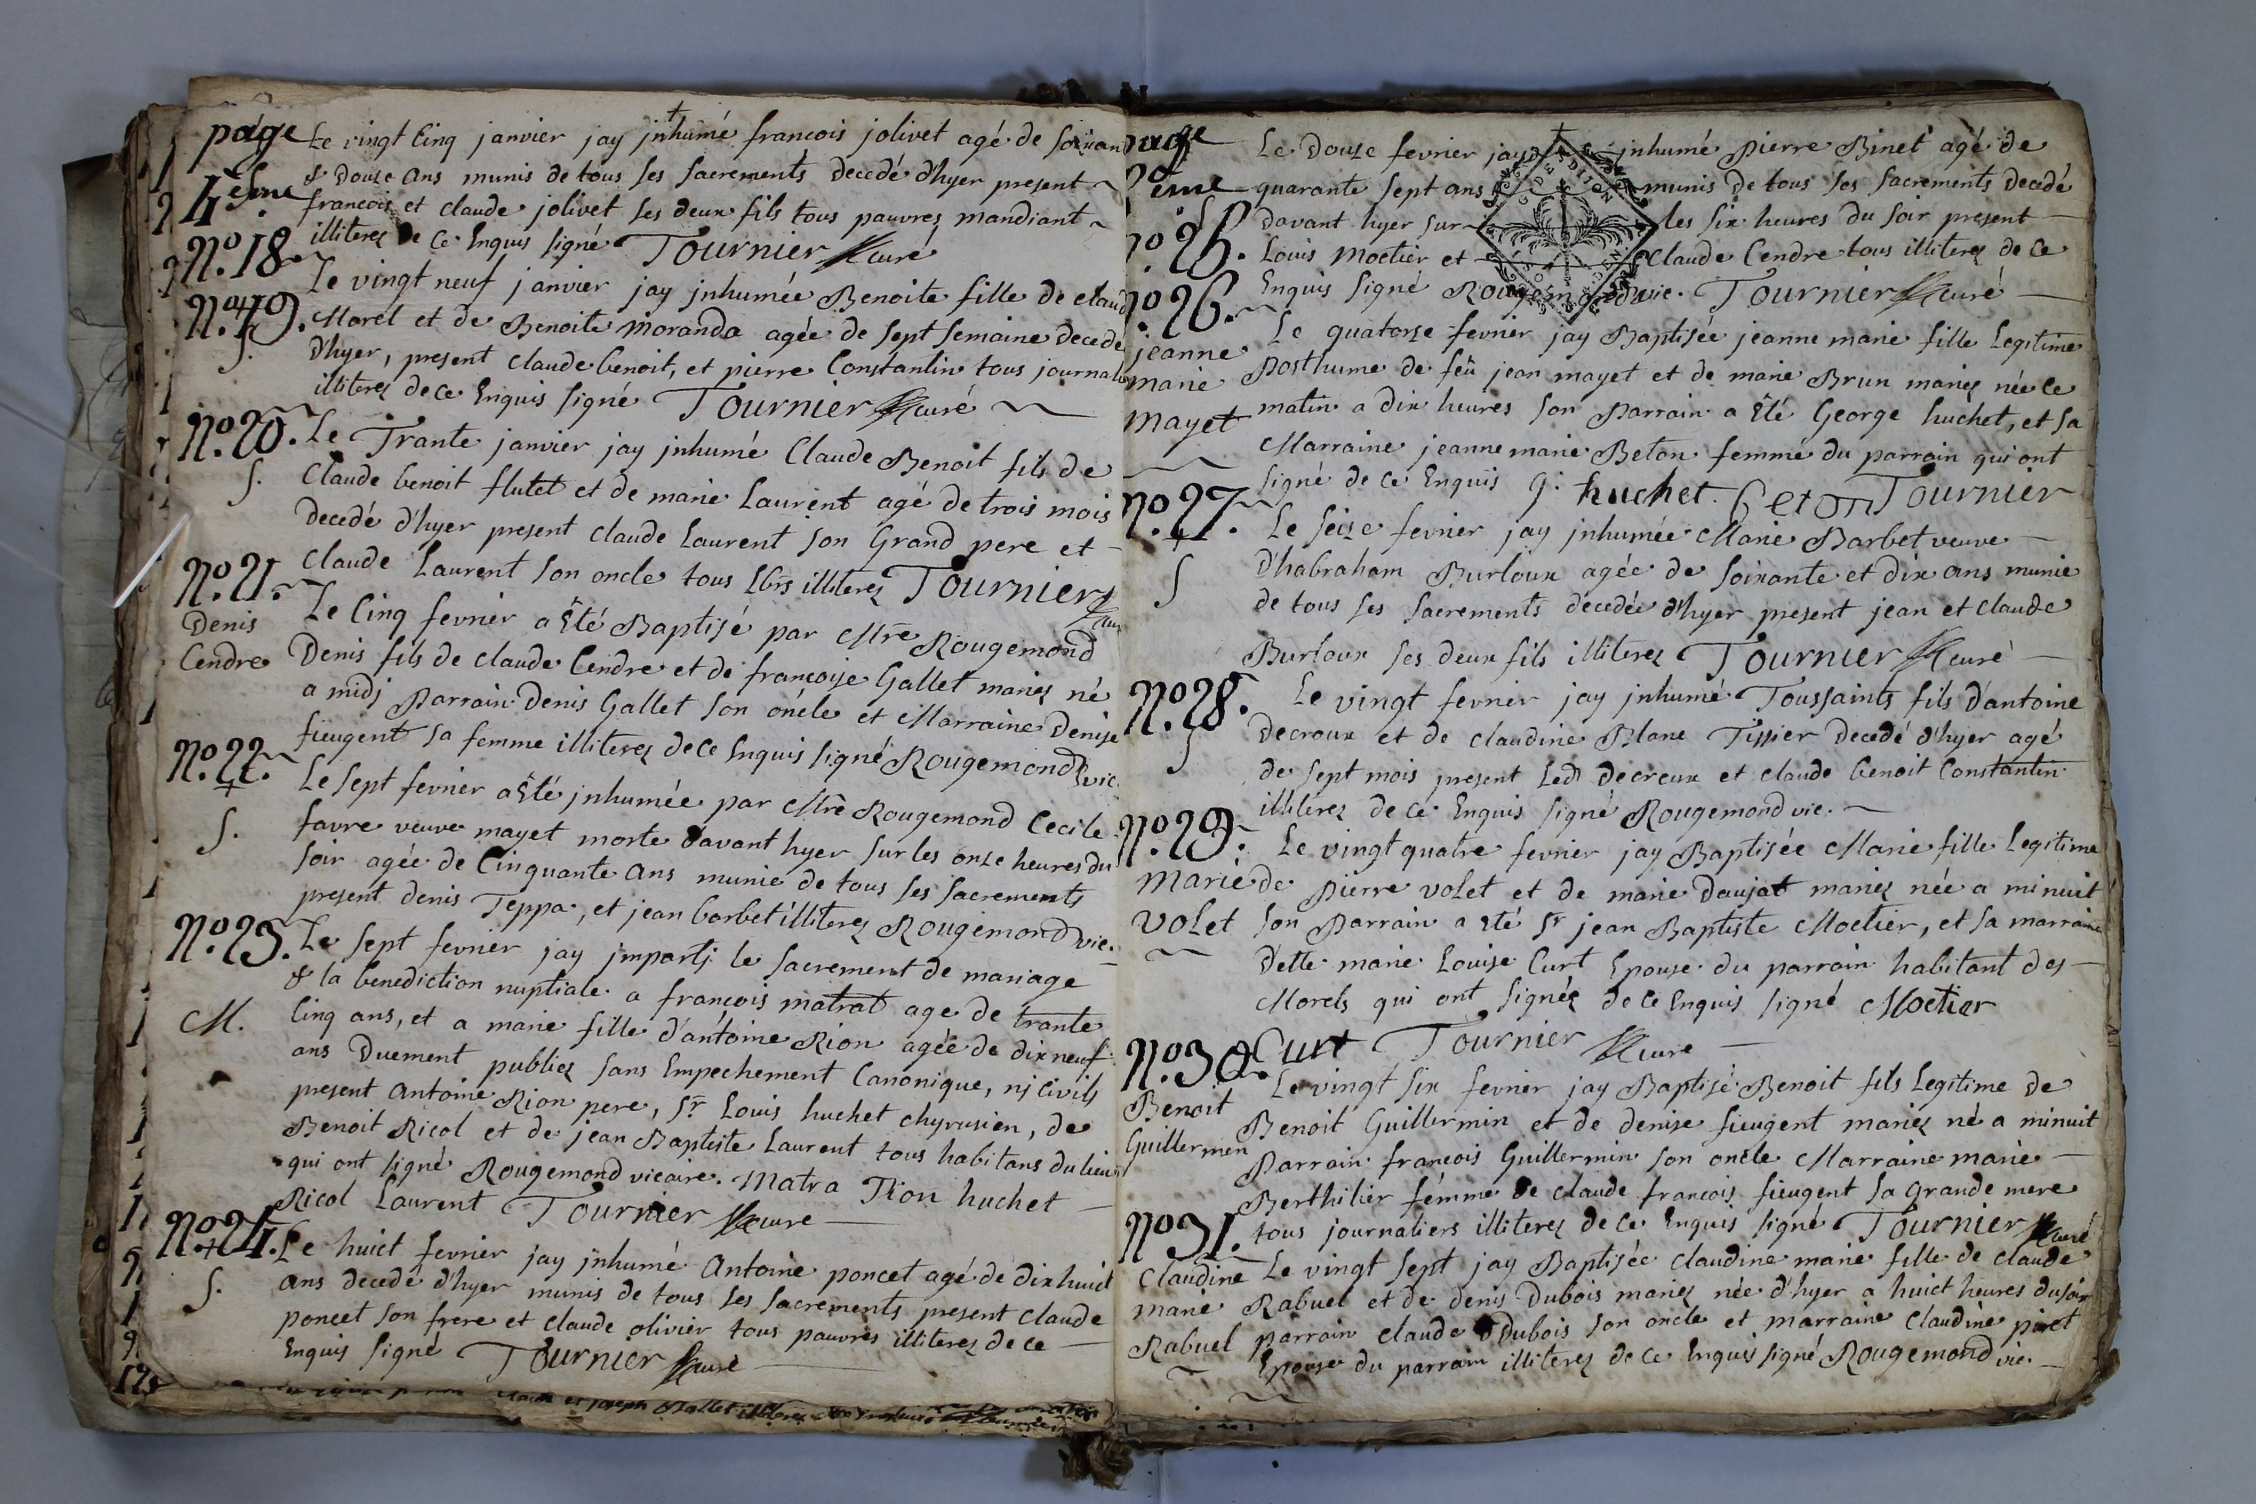 page
4eme
Le vingt Cinq janvier jay jnhumé francois jolivet agé de soixan
& Douze ans munis de tous ses sacrements decedé d'hyer present
francois et claude jolivet ses deux fils tous pauvres mandiant
illiterez de ce Enquis signé Tournier curé
No. 18
No. 19.
S.
Le vingt neuf janvier jay jnhumée Benoite fille de claud
Morel et de Benoite Moranda agée de sept semaine decede
d'hyer, present claude benoit, et pierre Constantin tous journali
illiterez de ce Enquis signé Tournier curé
No. 20.
S.
Le Trante janvier jay jnhumé Claude Benoit fils de
Claude benoit flutet et de marie Laurent agé de trois mois
Decedé d'hyer present claude Laurent son Grand pere et
Claude Laurent son oncle tous lbrs illiterez Tournier
No. 21.
Denis
Cendre
Le Cinq fevrier a Eté Baptisé par Mre Rougemond
Denis fils de claude Cendre et de francoise Gallet mariez né
a midj Parrain Denis Gallet son oncle et Marraine Denise
fieugent sa femme illiterez de ce Enquis signé Rougemond vic.
No. 22.
S.
Le sept fevrier a Eté jnhumée par Mre Rougemond Cecile
favre veuve mayet morte davant hyer sur les onze heures du
soir agée de Cinquante ans munie de tous ses sacrements
present denis Teppa, et jean borbet illiterez Rougemond vic.
No. 23.
M.
Le sept fevrier jay jmpartj le sacrement de mariage
& la benediction nuptiale a francois matrat age de trante
Cinq ans, et a marie fille d'antoine Rion agée de dix neuf
ans Duement publiez sans Empechement Canonique, nj Civils
present Antoine Rion pere, sr. Louis huchet chyrusien, de
Benoit Ricol et de jean Baptiste Laurent tous habitans du lieu
qui ont signé Rougemond vicaire. Matra Rion huchet
Ricol Laurent Tournier curé
No. 24.
S.
Le huict fevrier jay jnhumé Antoine poncet agé de dix huict
ans decedé d'hyer munis de tous ses sacrements present claude
poncet son frere et claude olivier tous pauvres illiterez de ce
Enquis signé Tournier curé
page
eme
no. 25.
Le Douze fevrier jay jnhumé Pierre Binet agé de
quarante sept ans munis de tous ses sacrements decedé
davant hyer sur les six heures du soir present
Louis Moetier et Claude Cendre tous illiterez de ce
Enquis signé Rougemond vic. Tournier curé
no. 26.
jeanne
marie
mayet
Le quatorze fevrier jay Baptisée jeanne marie fille Legitime
Posthume de feu jean mayet et de marie Brun mariez née ce
matin a dix heures son Parrain a Eté George huchet, et sa
Marraine jeanne marie Beton femme du parrain qui ont
signé de ce Enquis g. huchet. beton Tournier
no. 27.
S
Le seize fevrier jay jnhumée Marie Barbet veuve
D'habraham Burloux agée de soixante et dix ans munie
de tous ses sacrements decedée d'hyer present jean et claude
Burloux ses deux fils illiterez Tournier curé
No. 28.
S
Le vingt fevrier jay jnhumé Toussaints fils d'antoine
Decroux et de claudine Blanc Tissier Decedé d'hyer agé
de sept mois present led Decreux et claude benoit Constantin
illiterez de ce Enquis signé Rougemond vic.
No. 29.
Marie
Volet
Le vingt quatre fevrier jay Baptisée Marie fille Legitime
de Pierre volet et de marie Daujat mariez née a minuit
son Parrain a Eté Sr jean Baptiste Moetier, et sa marraine
Delle marie Louise Curt Epouse du parrain habitant des
Morels qui ont signés de ce Enquis signé Moetier
Curt Tournier curé
No. 30.
Benoit
Guillermen
Le vingt six fevrier jay Baptisé Benoit fils Legitime de
Benoit Guillermin et de denise fieugent mariez né a minuit
Parrain francois Guillermin son oncle Marraine marie
Berthilier femme de claude francois fieugent sa grande mere
tous journaliers illiterez de ce Enquis signé Tournier curé
No. 31.
Claudine
marie
Rabuel
Le vingt sept jay Baptisée claudine marie fille de claude
Rabuel et de denis Dubois mariez née d'hyer a huict heures du soir
parrain claude Dubois son oncle et marraine Claudine piret
Epouse du parrain illiterez de ce Enquis signé Rougemond vic.